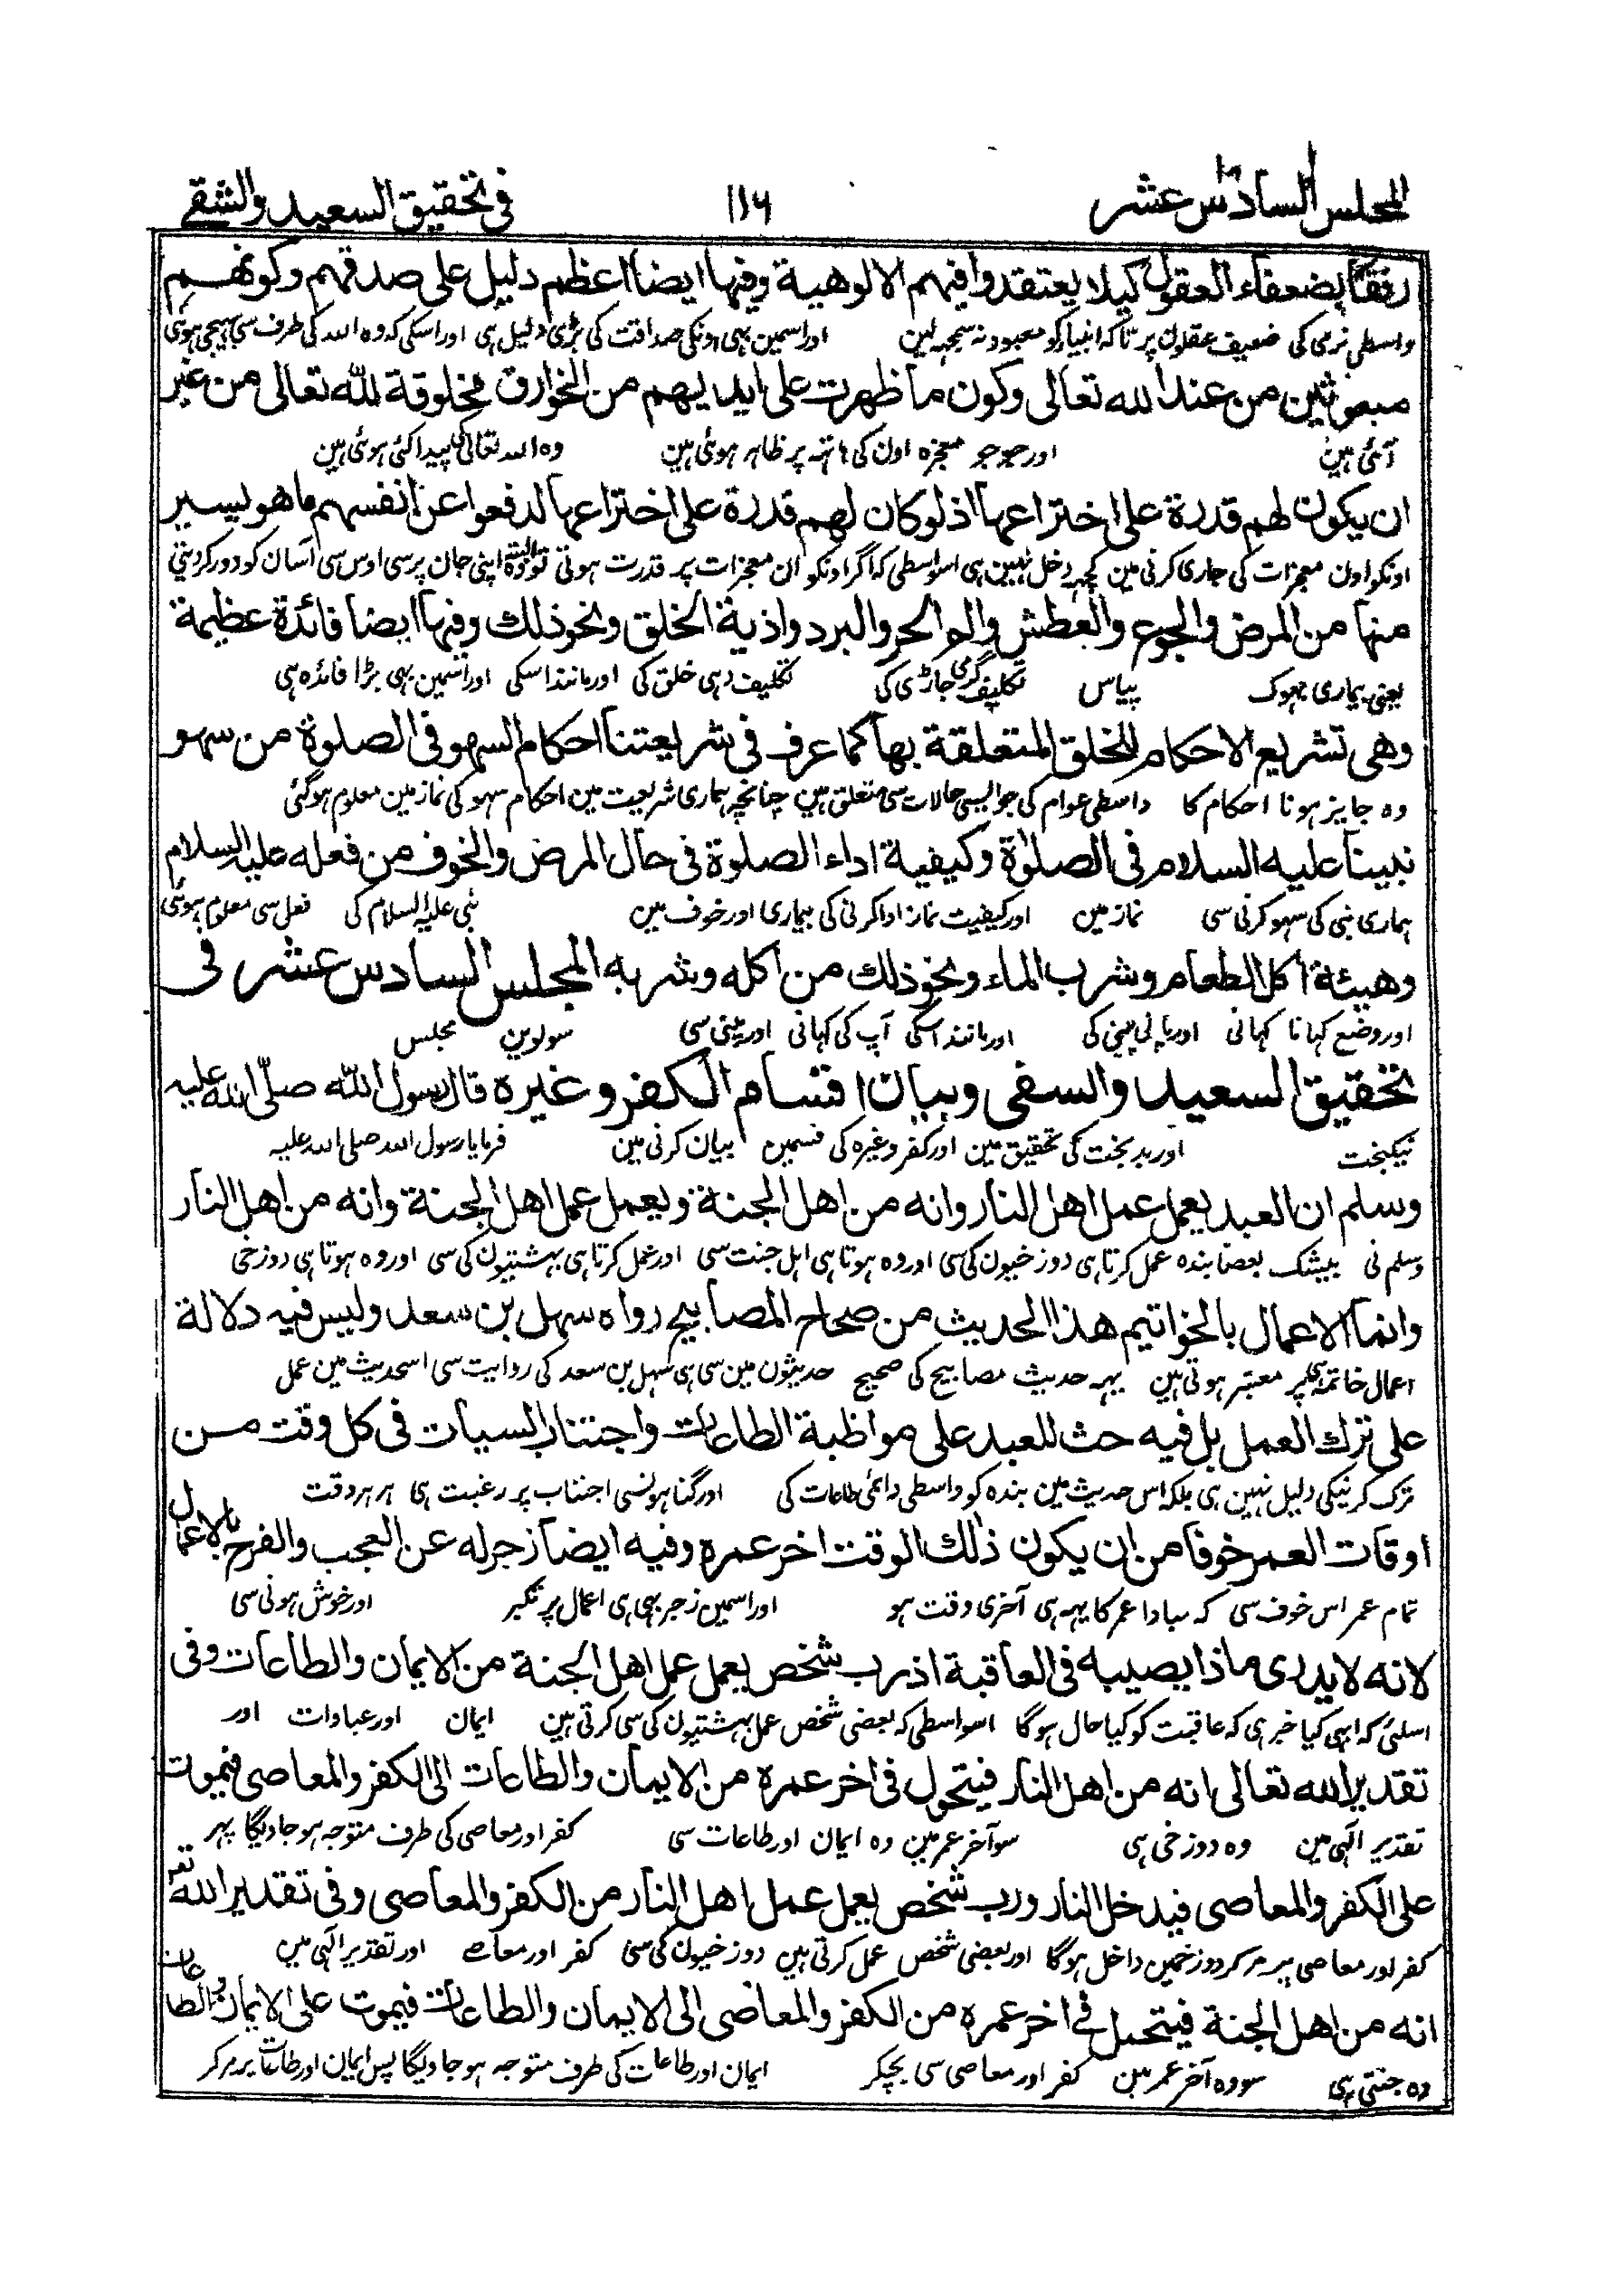 المجلس السادس عشر
۱۱۶
فی تحقیق السعید والشقے
رفقا بضعفاء العقول کیلا یعتقدوا فیهم الالوهیة وفیها ایضا اعظم دلیل علی صدقهم وکونهم
واسطی نرمی کی ضعیف عقلون پر تاکہ انبیا کو معبود نہ سمجہہ لین اور اسمین بہی اونکی صداقت کی بڑی دلیل ہی اور اسکی کہ وہ اللہ کی طرف سی بہیجی ہوئی
مبعوثین من عند الله تعالی وکون ما ظهرت علی ایدیهم من الخوارق مخلوقة لله تعالی من غیر
آئی ہین اور جو جو معجزہ اون کی ہاتہہ پر ظاہر ہوئی ہین وہ اللہ تعالی کی پیدا کئی ہوئی ہین
ان یکون لهم قدرة علی اختراعها اذ لو کان لهم قدرة علی اختراعها لدفعوا عن انفسهم ما هو یسیر
اونکو اون معجزات کی جاری کرنی مین کچہہ دخل نہین ہی اسواسطی کہ اگر اونکو ان معجزات پر قدرت ہوتی تو البتہ وہ اپنی جان پر سی اوس سی آسان کو دور کردیتی
منها من المرض والجوع والعطش والم الحر والبرد واذیة الخلق ونحو ذلك وفیها ایضا فائدة عظیمة
یعنی بیماری بہوک پیاس تکلیف گرمی جاڑی کی تکلیف دہی خلق کی اور مانند اسکی اور اسمین بہی بڑا فائدہ ہی
وهی تشریع الاحکام للخلق المتعلقة بها کما عرف فی شریعتنا احکام السهو فی الصلوة من سهو
وہ جایز ہونا احکام کا واسطی عوام کی جو ایسی حالات سی متعلق ہین چنانچہ ہماری شریعت مین احکام سہو کی نماز مین معلوم ہوگئی
نبینا علیه السلام فی الصلوة وکیفیة اداء الصلوة فی حال المرض والخوف من فعله علیه السلام
ہماری نبی کی سہو کرنی سی نماز مین اور کیفیت نماز ادا کرنی کی بیماری اور خوف مین نبی علیہ السلام کی فعل سی معلوم ہوئی
وهیئة اکل الطعام وشرب الماء ونحو ذلك من اکله وشربه المجلس السادس عشر فی
اور وضع کہانا کہانی اور پانی پینی کی اور مانند اسکی آپ کی کہانی اور پینی سی سولوین مجلس
تحقیق السعید والسقی وبیان اقسام الکفر وغیره قال رسول الله صلّی الله علیه
نیکبخت اور بدبخت کی تحقیق مین اور کفر وغیرہ کی قسمین بیان کرنی مین فرمایا رسول اللہ صلی اللہ علیہ
وسلم ان العبد یعمل عمل اهل النار وانه من اهل الجنة ویعمل عمل اهل الجنة وانه من اهل النار
وسلم نی بیشک بعضا بندہ عمل کرتا ہی دوزخیون کی سی اور وہ ہوتا ہی اہل جنت سی اور عمل کرتا ہی بہشتیون کی سی اور وہ ہوتا ہی دوزخی
وانما الاعمال بالخواتیم هذا الحدیث من صحاح المصابیح رواه سهل بن سعد ولیس فیه دلالة
اعمال خاتمہ ہی پر معتبر ہوتی ہین یہہ حدیث مصابیح کی صحیح حدیثون مین سی ہی سہل بن سعد کی روایت سی اسحدیث مین عمل
علی ترك العمل بل فیه حث للعبد علی مواظبة الطاعات واجتناب السیات فی کل وقت من
ترک کرنیکی دلیل نہین ہی بلکہ اس حدیث مین بندہ کو واسطی دائمی طاعات کی اور گناہونسی اجتناب پر رغبت ہی ہر ہر وقت
اوقات العمر خوفا من ان یکون ذلك الوقت اخر عمره وفیه ایضا زجر له عن العجب والفرح بالاعمال
تمام عمر اس خوف سی کہ مبادا عمر کا یہہ ہی آخری وقت ہو اور اسمین زجر بہی ہی اعمال پر تکبر اور خوش ہونی سی
لانه لا یدری ماذا یصیبه فی العاقبة اذ رب شخص یعمل عمل اهل الجنة من الایمان والطاعات وفی
اسلئی کہ ابہی کیا خبر ہی کہ عاقبت کو کیا حال ہوگا اسواسطی کہ بعضی شخص عمل بہشتیون کی سی کرتی ہین ایمان اور عبادات اور
تقدیر الله تعالی انه من اهل النار فیتحول فی اخر عمره من الایمان والطاعات الی الکفر والمعاصی فیموت
تقدیر الٰہی مین وہ دوزخی ہی سو آخر عمر مین وہ ایمان اور طاعات سی کفر اور معاصی کی طرف متوجہ ہوجاویگا پہر
علی الکفر والمعاصی فیدخل النار ورب شخص یعمل عمل اهل النار من الکفر والمعاصی وفی تقدیر الله تعـ
کفر اور معاصی پر مر کر دوزخمین داخل ہوگا اور بعضی شخص عمل کرتی ہین دوزخیون کی سی کفر اور معاصے اور تقدیر الٰہی مین
انه من اهل الجنة فیتحول فے اخر عمره من الکفر والمعاصی الی الایمان والطاعات فیموت علی الایمان والطاعات
وہ جنتی ہی سو وہ آخر عمر مین کفر اور معاصی سی بچکر ایمان اور طاعات کی طرف متوجہ ہوجاویگا پس ایمان اور طاعات پر مرکر